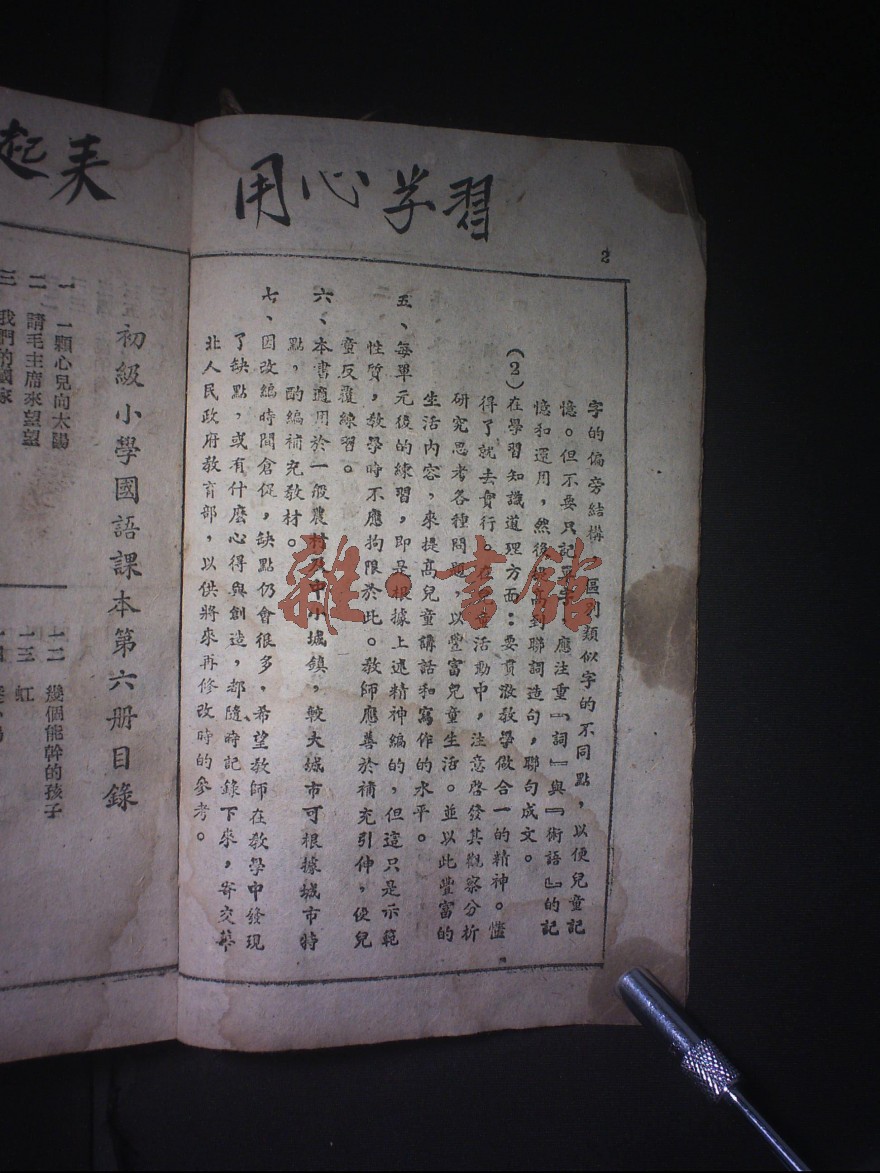 用心学習
2
字的偏旁結構，區別類似字的不同點，以便兒童記
憶。但不要只記單字，應注重『詞』與『術語』的記
憶和運用，然後 到聯詞造句，聯句成文。
(2)在學習知識道理方面：要貫澈教學做合一的精神。懂
得了就去實行。在 活動中，注意啓發其觀察分析
研究思考各種問題，以豐富兒童生活。並以此豐富的
生活內容，來提高兒童講話和寫作的水平。
五、每單元後的練習，即是根據上述精神編的，但這只是示範
性質，教學時不應拘限於此。教師應善於補充引伸，使兒
童反覆練習。
六、本書適用於一般農村及中小城鎮，較大城市可根據城市特
點，酌編補充教材。
七、因改編時間倉促，缺點仍會很多，希望教師在教學中發現
了缺點，或有什麽心得與創造，都隨時記錄下來，寄交華
北人民政府教育部，以供將來再修改時的參考。
起来
初級小學國語課本第六册目錄
一 一顆心兒向太陽
二 請毛主席來望望
三 我們的國家
十二 幾個能幹的孩子
十三 虹
雜·書館